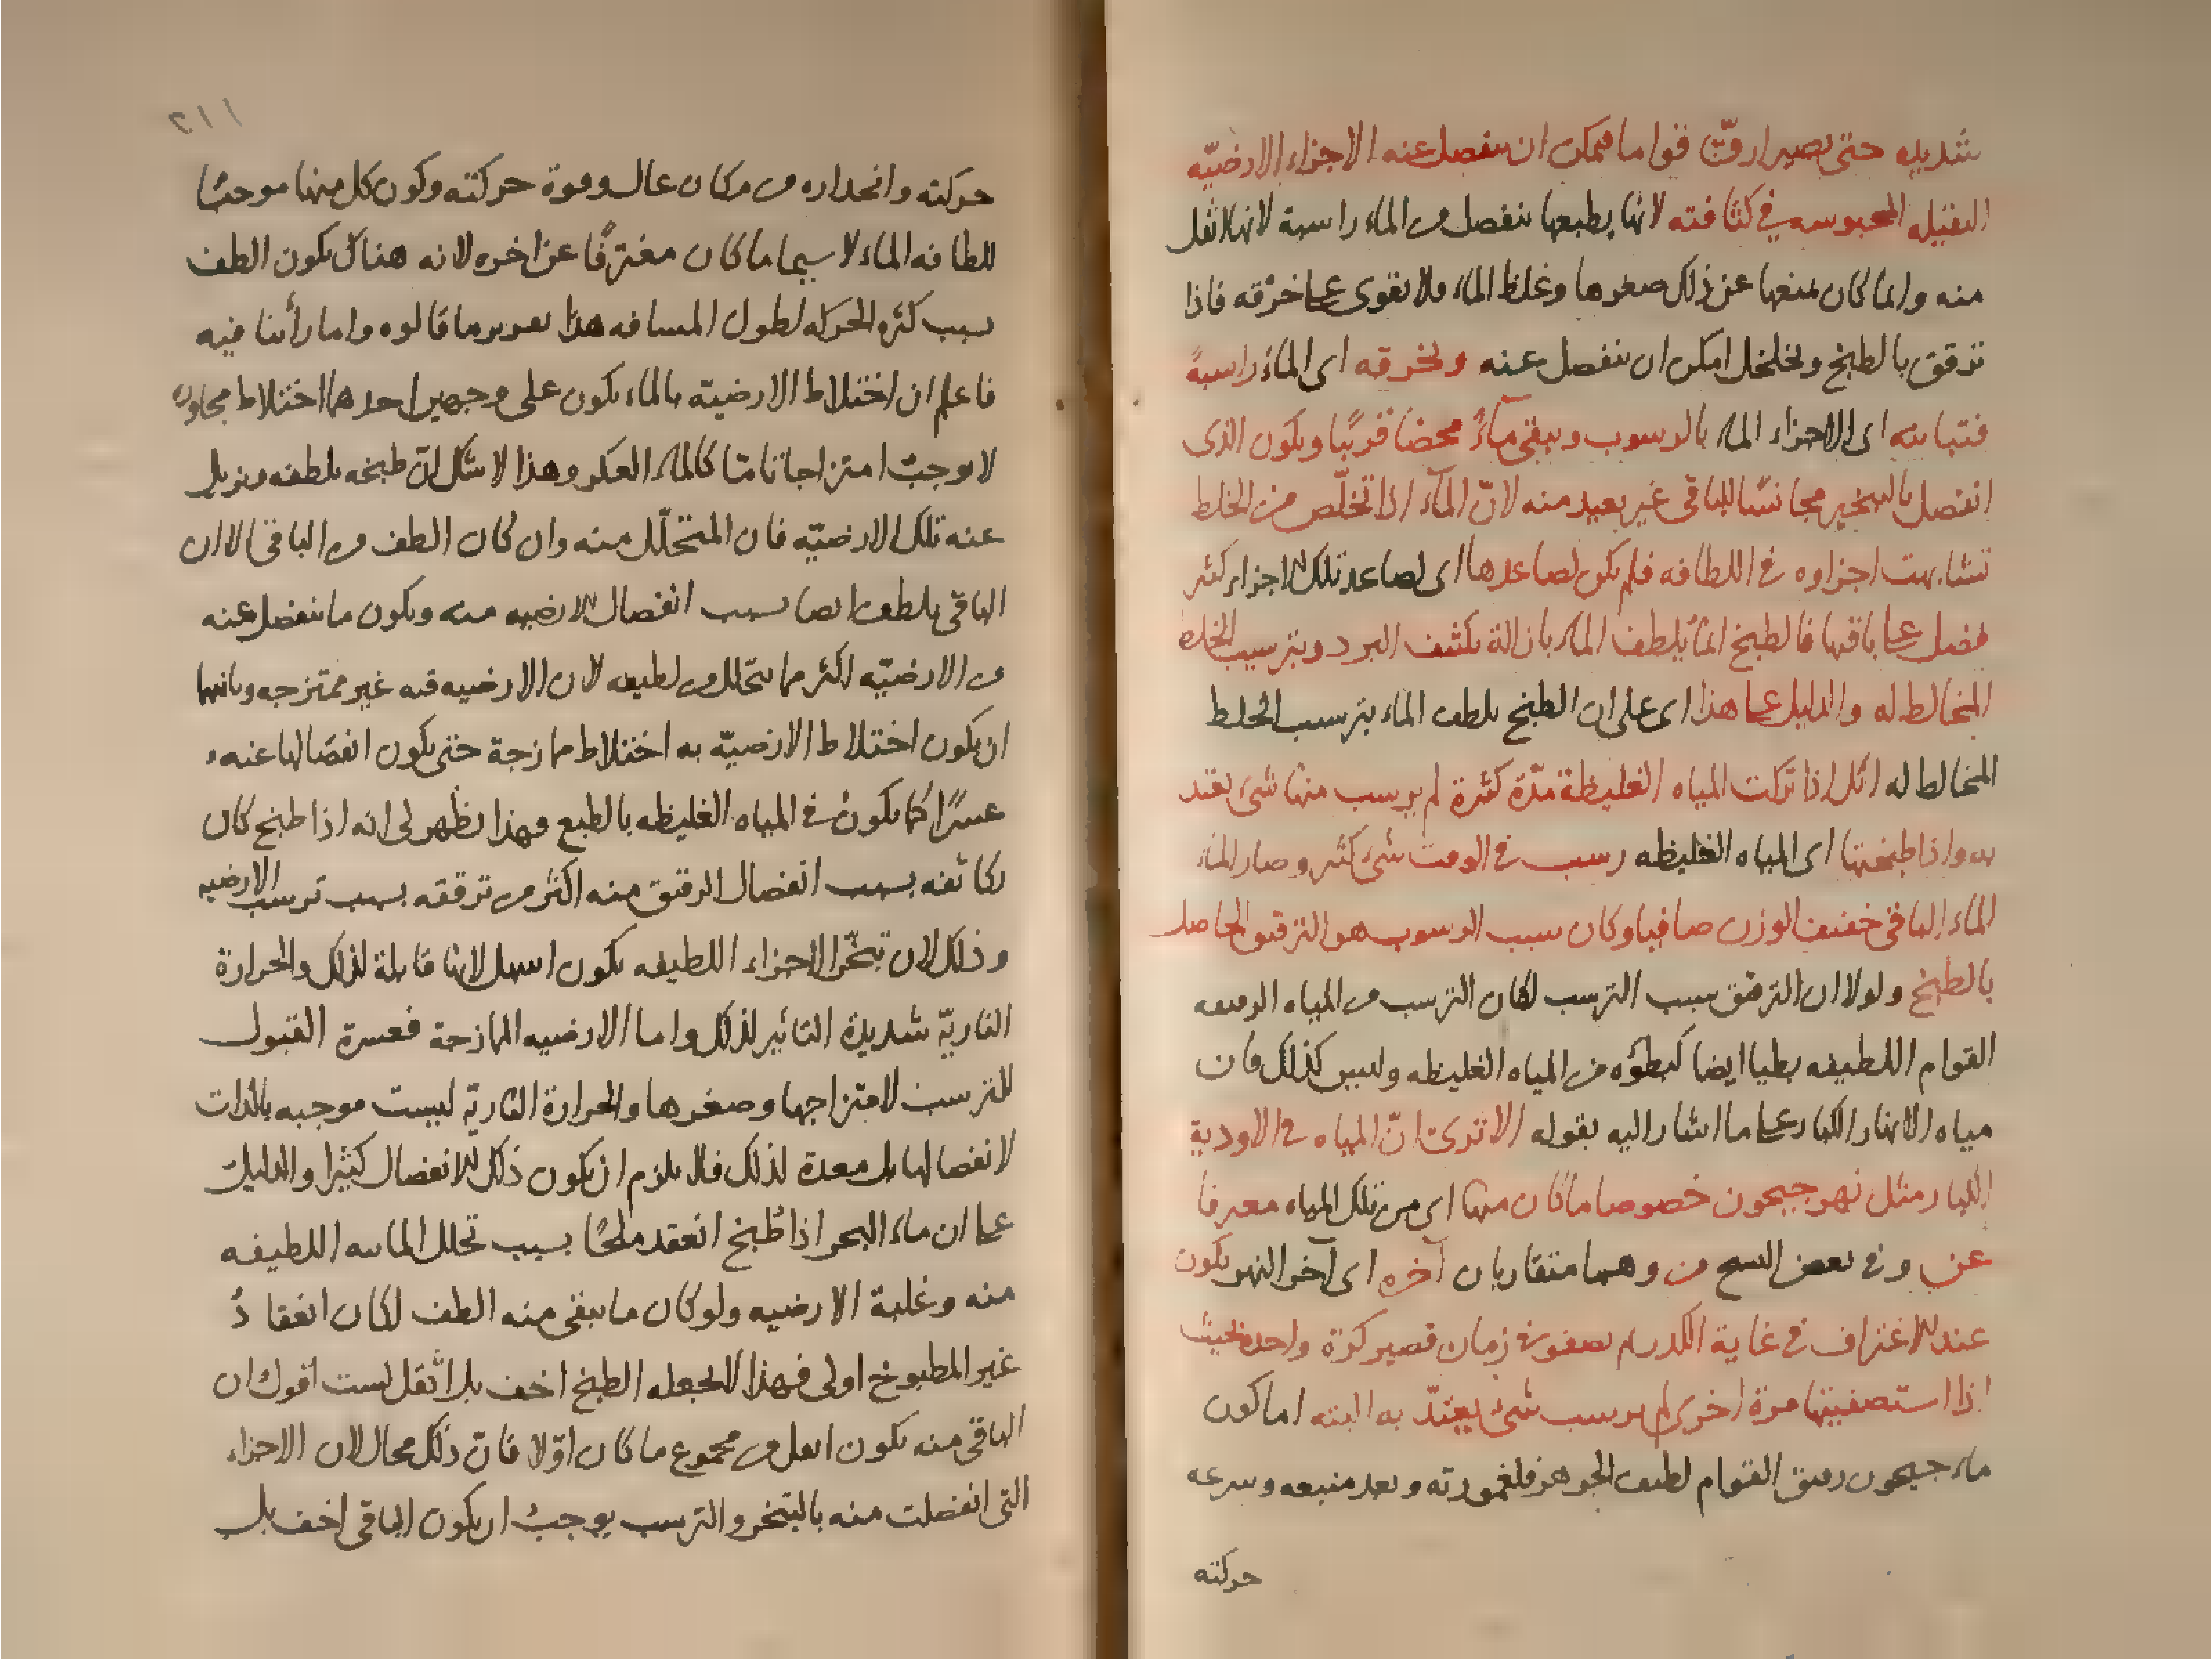 شديده حتى يصير ارقّ قواما فيمكن ان ينفصل عنه الاجزاء الارضيّة
الثقيله المحبوسه في كثافته لانها بطبعها تنفصل من الماء راسبة لانها اثقل
منه وانما كان يمنعها عن ذلك صغرها وغلظ الماء فلا تقوى على خرقه فاذا
ترقق بالطبخ وتخلخل امكن ان تنفصل عنه وتخرقه اى الماء راسبةً
فتباينه اى الاجزاء الماء بالرسوب ويبقى ماءً محضا قريبًا ويكون الذى
انفصل بالتبخير مجانسًا للباقى غير بعيد منه لانّ الماء اذا تخلّص من الخلط
تشابهت اجزاوه فى اللطافه فلم يكن لصاعدها اى لصاعد تلك الاجزاء كثير
فضل على باقيها فالطبخ انما يلطف الماء بازالة تكثف البرد وبترسيب الخلط
المخالط له والدليل على هذا اى على ان الطبخ يلطف الماء بترسيب الخلط
المخالط له انك اذا تركت المياه الغليظة مدّة كثيرة لم يرسب منها شىء يعتد
به واذا طبختها اى المياه الغليظه رسب فى الوقت شىء كثير وصار الماء
الماء الباقى خفيف الوزن صافيا وكان سبب الرسوب هو الترقيق الحاصل
بالطبخ ولولا ان الترقيق سبب الترسب لكان الترسب من المياه الرقيقه
القوام اللطيفه بطيا ايضا كبطؤه من المياه الغليظه وليس كذلك فان
مياه الانهار الكبار على ما اشار اليه بقوله الا ترى انّ المياه فى الاودية
الكبار مثل نهر جيحون خصوصا ما كان منها اى من تلك المياه مغترفا
عن وفى بعض النسخ من وهما متقاربان آخره اى آخر النهر يكون
عند الاغتراف فى غاية الكدر ثم يصفو فى زمان قصير كرّة واحده بحيث
اذا استصفيتها مرة اخرى لم يرسب شىء يعتدّ به البته اما كون
ماء جيحون رقيق القوام لطيف الجوهر فلغمورته وبعد منبعه وسرعه
حركته
٢١١
حركته وانحداره من مكان عال وقوة حركته وكون كل منها موجبًا
للطافه الماء لا سيما ما كان مغترفًا عن اخره لانه هناك يكون الطف
بسبب كثره الحركه لطول المسافه هذا تقرير ما قالوه واما رأينا فيه
فاعلم ان اختلاط الارضيّة بالماء يكون على وجهين احدهما اختلاط مجاورة
لا يوجب امتزاجا تامّا كالماء العكر وهذا لا شك انّ طبخه يلطفه ويزيل
عنه تلك الارضيّه فان المتحلّل منه وان كان الطف من الباقى الا ان
الباقى يلطف ايضا بسبب انفصال الارضيه منه ويكون ما ينفصل عنه
من الارضيّه اكثر مما يتحلل من لطيفه لان الارضيه فيه غير ممتزجه وثانيهما
ان يكون اختلاط الارضيّة به اختلاط ممازجة حتى يكون انفصالها عنه
عسرًا كما يكون فى المياه الغليظه بالطبع فهذا يظهر لى انه اذا طبخ كان
تكاثفه بسبب انفصال الرقيق منه اكثر من ترققه بسبب ترسب الارضيه
وذلك لان تبخّر الاجزاء اللطيفه يكون اسهل لانها قابلة لذلك والحرارة
الناريّة شديدة التاثير لذلك واما الارضيه الممازجة فعسرة القبول
للترسب لامتزاجها وصغرها والحرارة الناريّة ليست موجبه بالذات
لانفصالها بل معدة لذلك فلا يلزم ان يكون ذلك الانفصال كثيرا والدليل
على ان ماء البحر اذا طُبخ انعقد ملحًا بسبب تحلل المائيه اللطيفه
منه وغلبة الارضيه ولو كان ما يبقى منه الطف لكان انعقادُ
غير المطبوخ اولى فهذا لا يجعله الطبخ اخف بل اثقل لست اقول ان
الباقى منه يكون اثقل من مجموع ما كان اوّلا فانّ ذلك محال لان الاجزاء
التى انفصلت منه بالتبخر والترسب يوجب ان يكون الباقى اخف بل